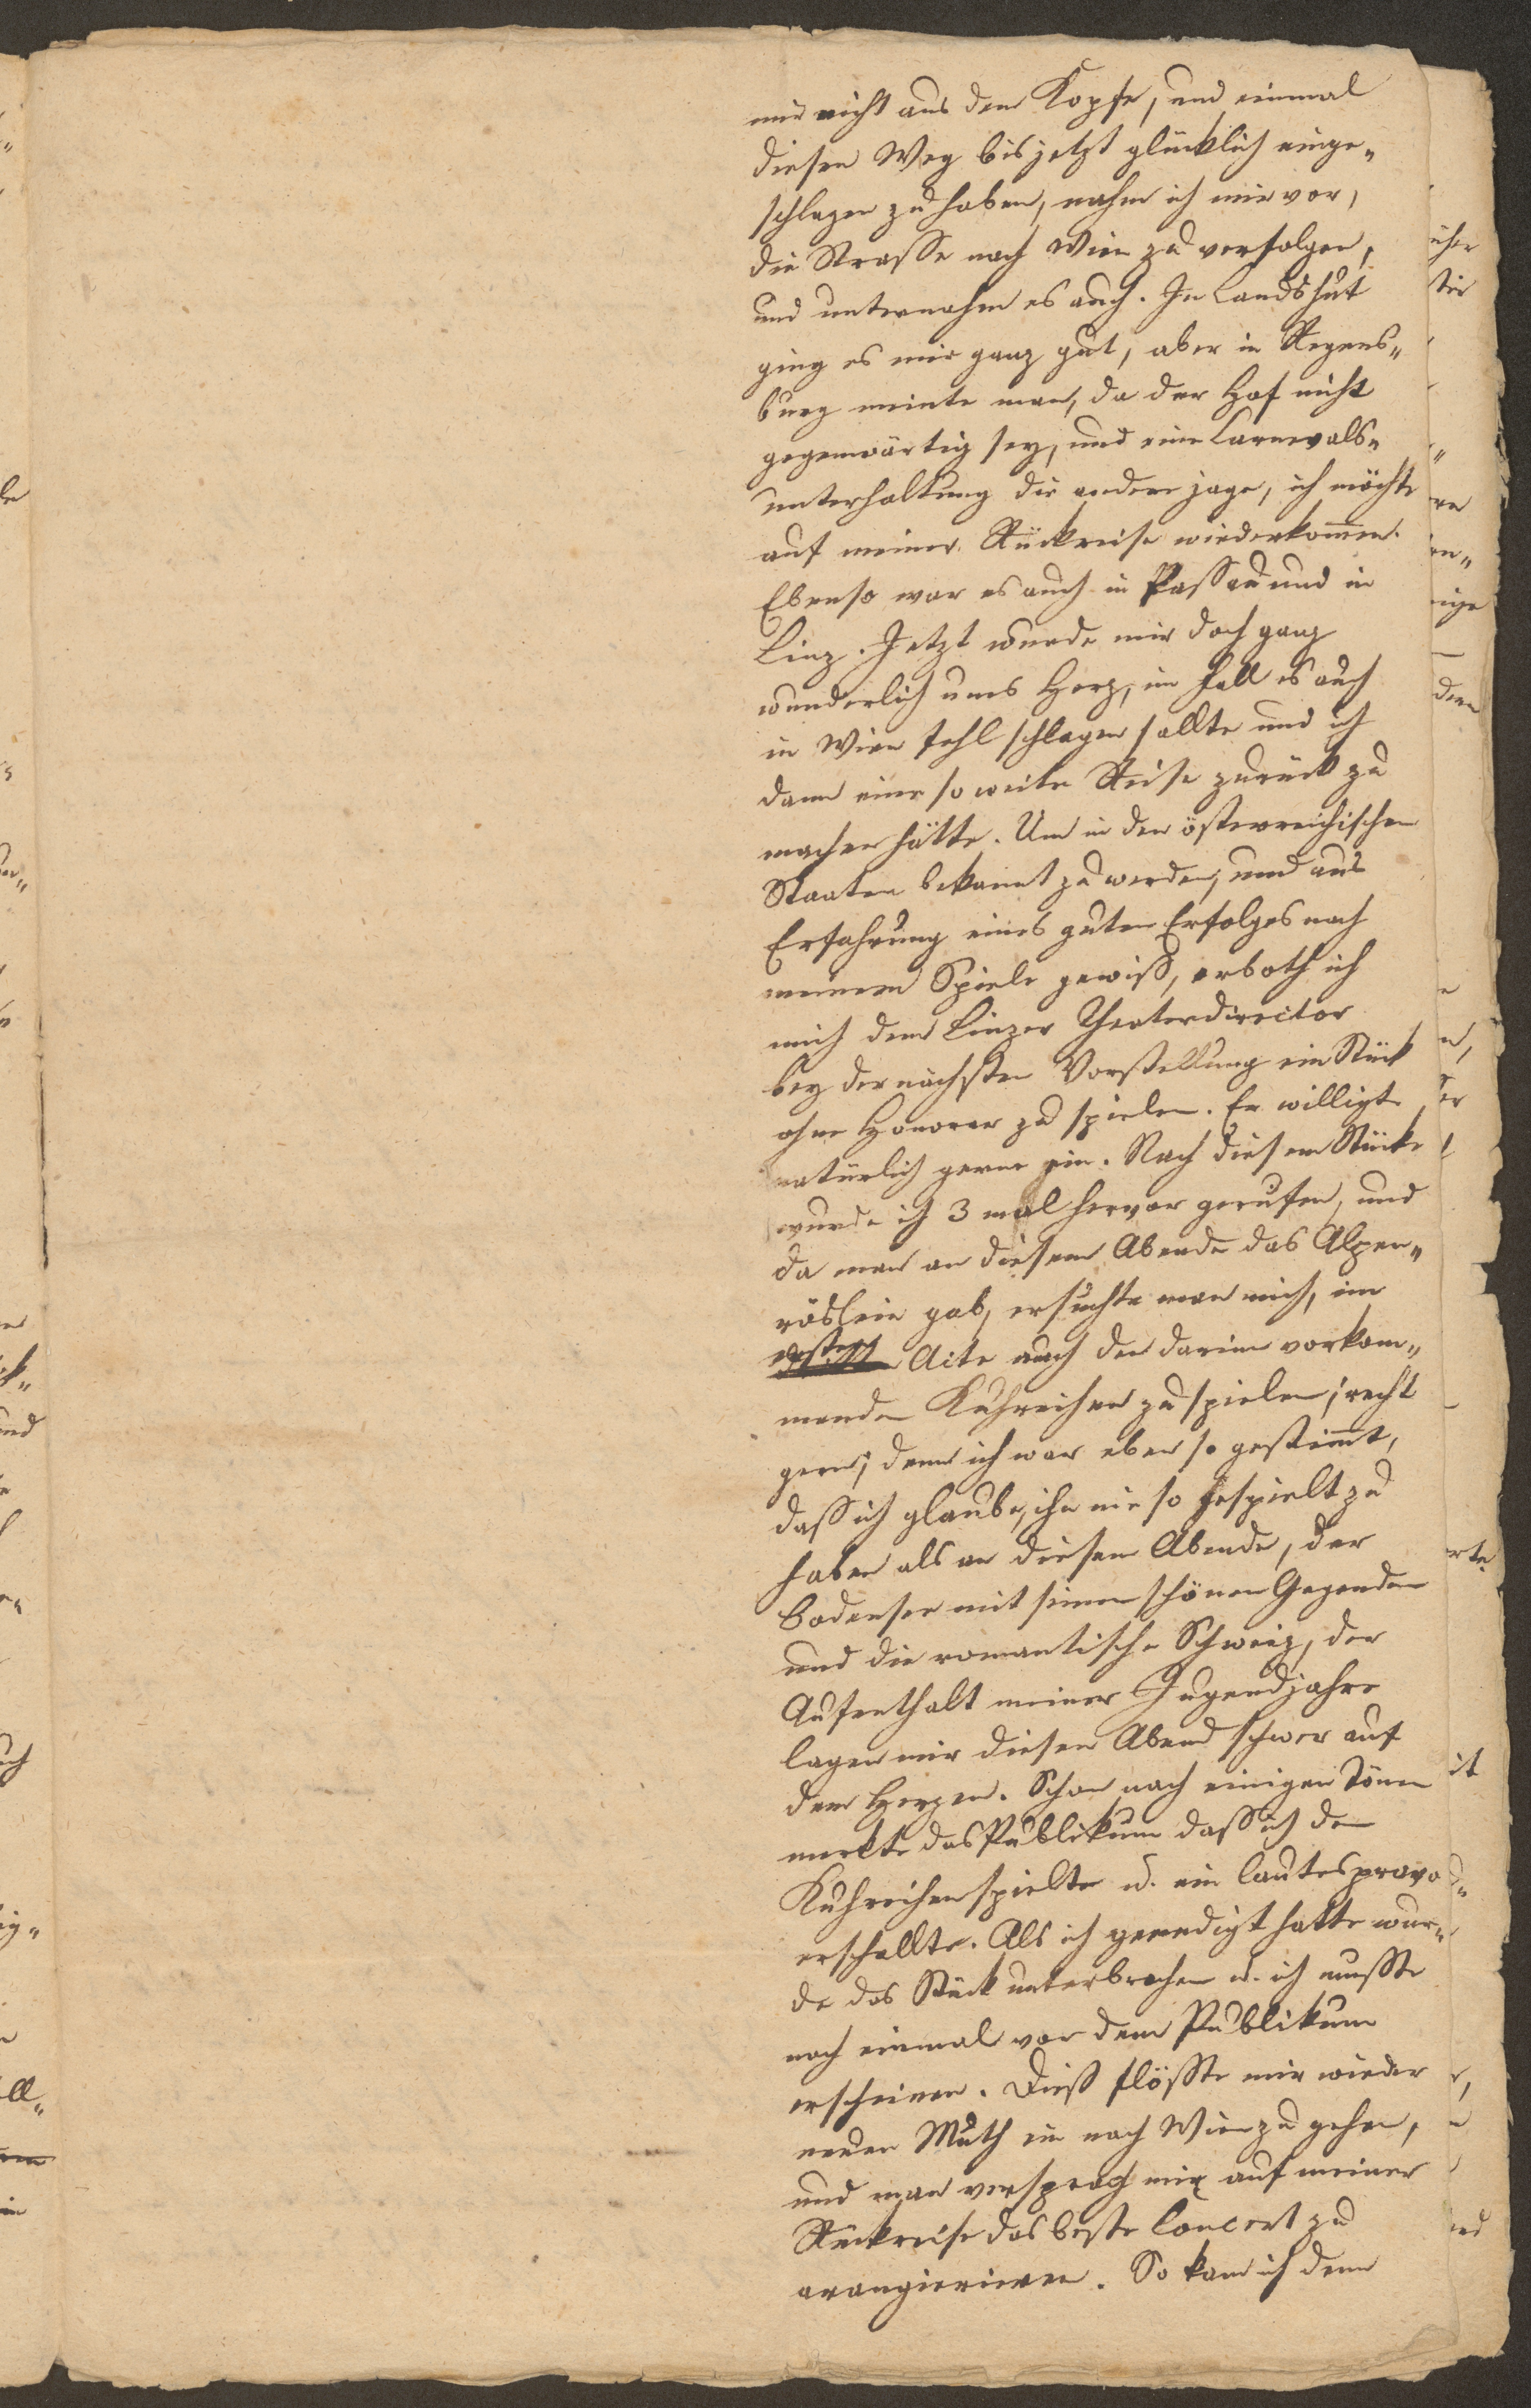 mir nicht aus dem Kopfe, und einmal
diesen Weg bis jetzt glücklich einge„
schlagen zu haben, nahm ich mir vor,
die Strasse nach Wien zu verfolgen,
und unternahm es auch. In Landshut
ging es mir ganz gut, aber in Regens„
burg meinte man, da der Hof nicht
gegenwärtig sey, und eine Carnevals„
unterhaltung die andere jage, ich möchte
auf meiner Rückreise wiederkom̄en.
Ebenso war es auch in Passau und in
Linz. Jetzt wurde mir doch ganz
wunderlich ums Herz, im Fall es auch
in Wien fehl schlagen sollte und ich
dann eine so weite Reise zurück zu
machen hätte. Um in den österreichischen
Staaten bekannt zu werden, und aus
Erfahrung eines guten Erfolges nach
meinem Spiele gewiß, erboth ich
mich dem Linzer Theaterdirector
bey der nächsten Vorstellung ein Stück
ohne Honorar zu spielen. Er willigte
natürlich gerne ein. Nach diesem Stücke
wurde ich 3 mal hervor gerufen, und
da man an diesem Abende das Alpen„
röslein gab, ersuchte man mich, im
Acte auch den darinn vorkom„
menden Kuhreihen zu spielen; recht
gern; denn ich war eben so gestim̄t,
daß ich glaube, ihn nie so gespielt zu
haben als an diesem Abende, der
Bodensee mit seinen schönen Gegenden
und die romantische Schweiz, der
Aufenthalt meiner Jugendjahre
lagen mir diesen Abend schwer auf
dem Herzen. Schon nach einigen Tönen
merkte das Publikum daß ich den
Kuhreihen spielte u. ein lautes pravo
erschallte. Als ich geendigt hatte wur„
de das Stück unterbrochen u. ich mußte
noch einmal vor dem Publikum
erscheinen. Dieß flößte mir wieder
neuen Muth ein nach Wien zu gehen,
und man versprach mir auf meiner
Rückreise das beste Concert zu
arangieriren. So kam ich denn